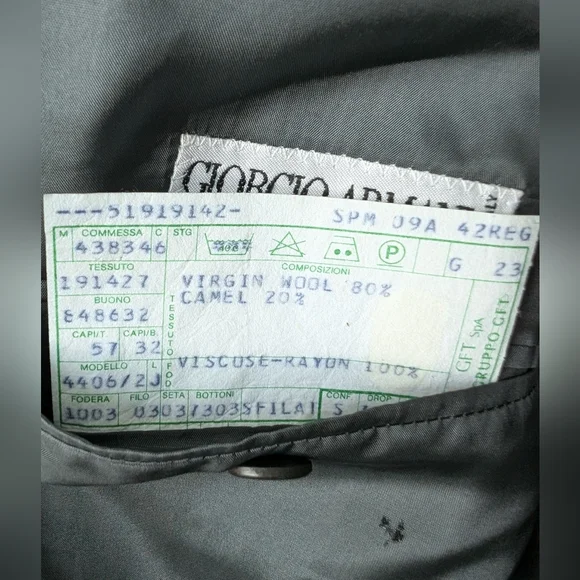 GIORGIO ARMANI
---51919142- SPM 09A 42REG
M COMMESSA C STG
438346 G 23
TESSUTO COMPOSIZIONI
191427 VIRGIN WOOL 80%
BUONO CAMEL 20%
848632
TESSUTO
CAPI/T. CAPI/B.
57 32
MODELLO L VISCOSE-RAYON 100%
4406/2J FOD
FODERA FILO SETA BOTTONI CONF DROP
1003 0303/303SFILAI S
GFT SpA
GRUPPO GFT
P